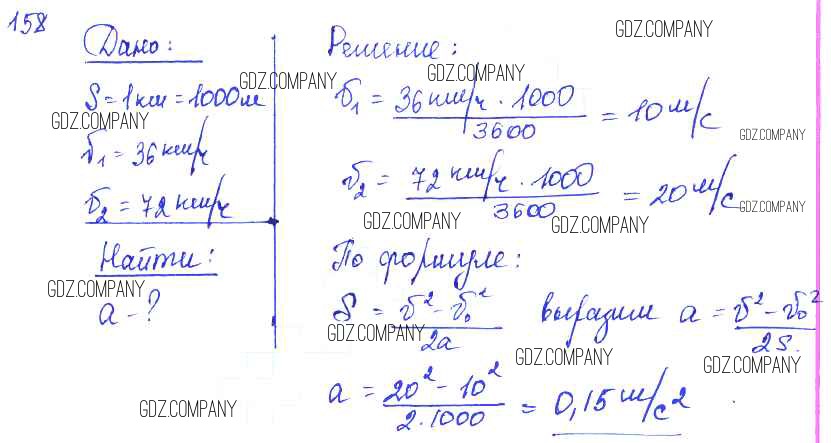 158
Дано:
S = 1 км = 1000 м
v₁ = 36 км/ч
v₂ = 72 км/ч
Найти:
a - ?
Решение:
v₁ = 36 км/ч · 1000 / 3600 = 10 м/с
v₂ = 72 км/ч · 1000 / 3600 = 20 м/с
По формуле:
S = v² - v₀² / 2a выразим a = v² - v₀² / 2S.
a = 20² - 10² / 2·1000 = 0,15 м/с²
GDZ.COMPANY
GDZ.COMPANY
GDZ.COMPANY
GDZ.COMPANY
GDZ.COMPANY
GDZ.COMPANY
GDZ.COMPANY
GDZ.COMPANY
GDZ.COMPANY
GDZ.COMPANY
GDZ.COMPANY
GDZ.COMPANY
GDZ.COMPANY